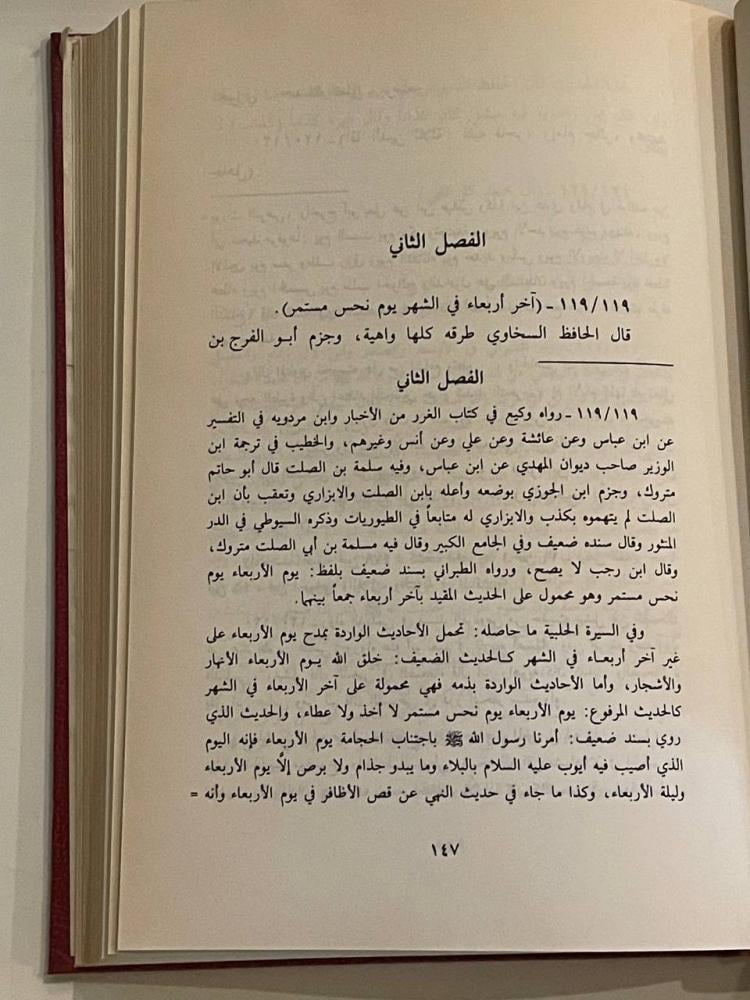 الفصل الثاني
١١٩/١١٩ - (آخر أربعاء في الشهر يوم نحس مستمر).
قال الحافظ السخاوي طرقه كلها واهية، وجزم أبو الفرج بن
الفصل الثاني
١١٩/١١٩ - رواه وكيع في كتاب الغرر من الأخبار وابن مردويه في التفسير
عن ابن عباس وعن عائشة وعن علي وعن أنس وغيرهم، والخطيب في ترجمة ابن
الوزير صاحب ديوان المهدي عن ابن عباس، وفيه سلمة بن الصلت قال أبو حاتم
متروك، وجزم ابن الجوزي بوضعه وأعله بابن الصلت والابزاري وتعقب بأن ابن
الصلت لم يتهموه بكذب والابزاري له متابعاً في الطيوريات وذكره السيوطي في الدر
المنثور وقال سنده ضعيف وفي الجامع الكبير وقال فيه مسلمة بن أبي الصلت متروك،
وقال ابن رجب لا يصح، ورواه الطبراني بسند ضعيف بلفظ: يوم الأربعاء يوم
نحس مستمر وهو محمول على الحديث المقيد بآخر أربعاء جمعاً بينهما.
وفي السيرة الحلبية ما حاصله: تحمل الأحاديث الواردة بمدح يوم الأربعاء على
غير آخر أربعاء في الشهر كالحديث الضعيف: خلق الله يوم الأربعاء الأنهار
والأشجار، وأما الأحاديث الواردة بذمه فهي محمولة على آخر الأربعاء في الشهر
كالحديث المرفوع: يوم الأربعاء يوم نحس مستمر لا أخذ ولا عطاء، والحديث الذي
روي بسند ضعيف: أمرنا رسول الله ﷺ باجتناب الحجامة يوم الأربعاء فإنه اليوم
الذي أصيب فيه أيوب عليه السلام بالبلاء وما يبدو جذام ولا برص إلّا يوم الأربعاء
وليلة الأربعاء، وكذا ما جاء في حديث النهي عن قص الأظافر في يوم الأربعاء وأنه =
١٤٧